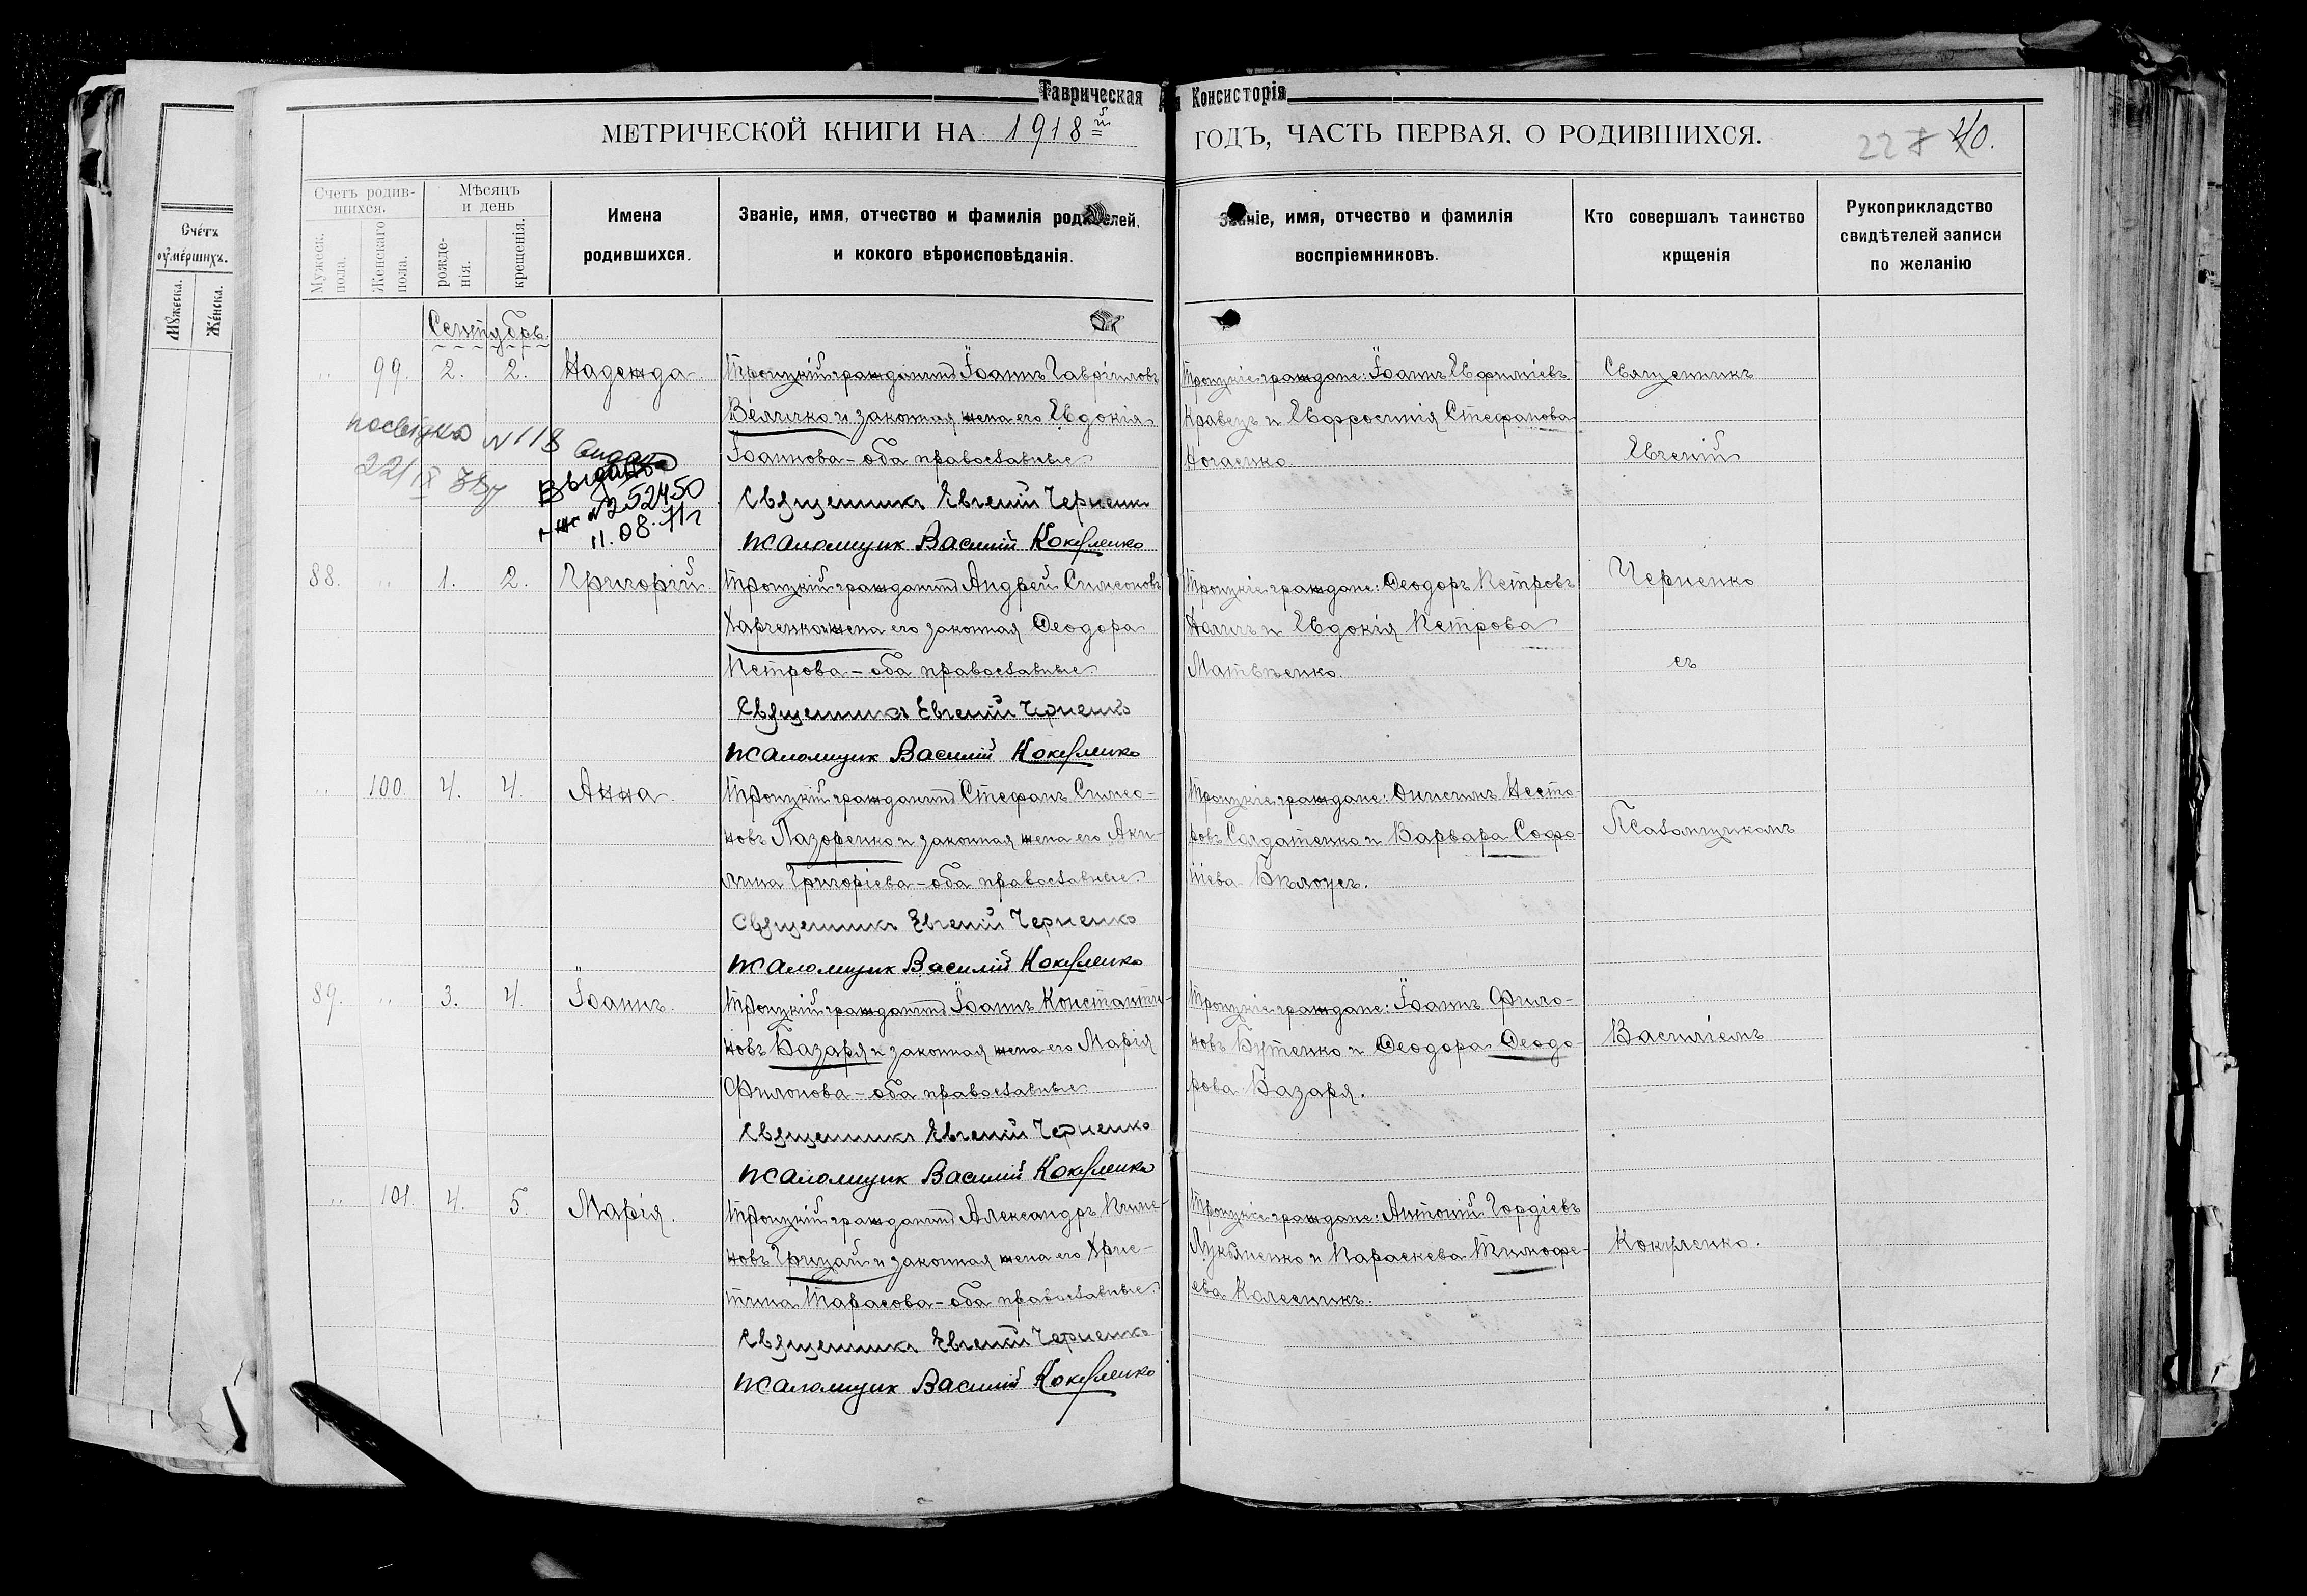 Таврическая Д. Консисторія
МЕТРИЧЕСКОЙ КНИГИ НА 1918й
ГОДЪ, ЧАСТЬ ПЕРВАЯ, О РОДИВШИХСЯ.
227 40.
Счетъ умершихъ.
Мужеска.
Женска.
Счетъ родив-
шихся.
Мужеск. пола.
Женскаго пола.
Мѣсяцъ
и день
рожде-
нія.
крещенія.
Имена
родившихся.
Званіе, имя, отчество и фамилія родителей,
и кокого вѣроисповѣданія.
Званіе, имя, отчество и фамилія
воспріемниковъ.
Кто совершалъ таинство
крщенія
Рукоприкладство
свидѣтелей записи
по желанію
Сентябрь.
" 99. 2. 2. Надежда
Троицкій гражданинъ Іоаннъ Гавріиловъ
Величко и законная жена его Евдокія
Іоаннова - оба православные
Священникъ Евгеній Черненко
Псаломщик Василий Кокуленко
Троицкіе граждане: Іоаннъ Евфиміевъ
Кравецъ и Евфросинія Стефанова
Ногаенко.
N 118
22/IX
Выдано
N 252450
11.08.71г
88. " 1. 2. Григорій
Троицкій гражданинъ Андрей Симеоновъ
Харченко и жена его законная Ѳеодора
Петрова - оба православные
Священникъ Евгеній Черненко
Псаломщик Василий Кокуленко
Троицкіе граждане: Ѳеодоръ Петровъ
Евдокія Петрова
Матвѣенко.
" 100. 4. 4. Анна
Троицкій гражданинъ Стефанъ Симео-
новъ Лазоренко и законная жена его Аки-
лина Григоріева - оба православные
Священникъ Евгеній Черненко
Псаломщик Василий Кокуленко
Троицкіе граждане: Онисимъ Несто-
ровъ Солдатенко и Варвара Софо-
ніева Бѣлоусъ.
89. " 3. 4. Іоаннъ.
Троицкій гражданинъ Іоаннъ Константи-
новъ Базаря и законная жена его Марія
Филонова - оба православные
Священникъ Евгеній Черненко
Псаломщик Василий Кокуленко
Троицкіе граждане: Іоаннъ Фило-
новъ Бутенко и Ѳеодора Ѳеодо-
рова Базаря.
" 101. 4. 5. Марія.
Троицкій гражданинъ Александръ
новъ Грицай и законная жена его Хрис-
тина Тарасова - оба православные
Священникъ Евгеній Черненко
Псаломщик Василий Кокуленко
Троицкіе граждане: Антоній Гордіевъ
Лукьяненко и Параскева Тимофе-
ева Колесникъ.
Священникъ
Евгеній
Черненко
съ
Псаломщикомъ
Василіемъ
Кокуленко.